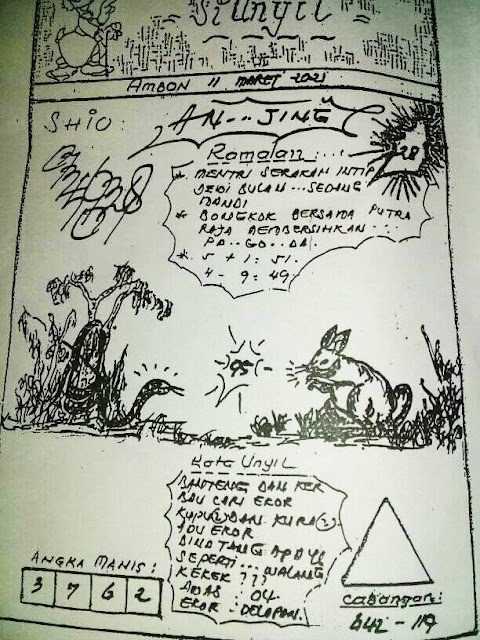 SiUnyil
AMBON 11 MARET 2021
SHIO: AN...JING
Ramalan:...
28
* MENTRI SERAKAH INTIP
DEWI BULAN...SEDANG
MANDI
* BONGKOK BERSAMA PUTRA
RAJA MEMBERSIHKAN...
PA..GO..DA.
* 5 + 1 = 51.
4 - 9 = 49
95
Kata Unyil
BANTENG DAN KER
BAU CARI EKOR
KUPU(2) DAN KURA(2).
ADU EKOR
BINATANG APA YG
SEPERTI...WALANG
KEKEK ???
AWAS : 04.
EKOR : DELAPAN.
ANGKA MANIS:
3 7 6 2
Cabangan: